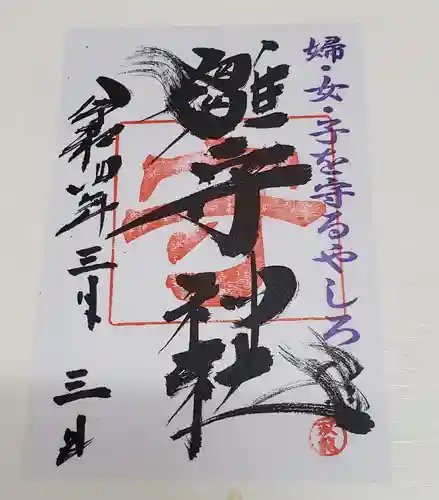 婦・女・子を守るやしろ
雛子神社
令和四年三月
三日